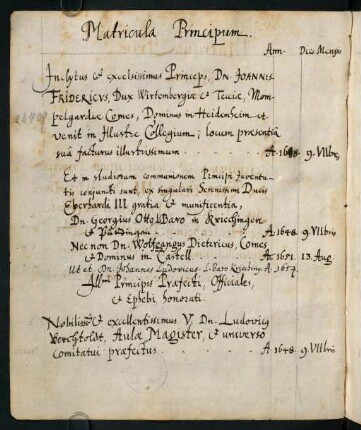 Matricula Principum.
Ann. Dies Mensis
Inclytus & excelsissimus Princeps, Dn. JOANNES
FRIDERICVS, Dux Wirtembergiæ & Tecciæ, Mom-
pelgardiæ Comes, Dominus in Heidenheim &
venit in Illustre Collegium; locum præsentiâ
suâ facturus illustrissimum . . . . . . A. 1648 9. VIIbris
Et in studiorum communionem Principi Juventu-
tis conjuncti sunt, ex singulari Serenissimi Ducis
Eberhardi III gratiâ & munificentiâ,
Dn. Georgius Otto L. Baro in Kriechingen
& Püttingen . . . . . . A. 1648. 9. VIIbris
Nec non Dn. Wolfgangus Dietericus, Comes
& Dominus in Castell. . . . . A. 1651. 13. Aug.
Ut et Dn. Johannes Ludovicus L. Baro A. 1657.
Principis Præfecti, Officiales,
& Ephebi honorati.
Nobiliss. & excellentissimus V. Dn. Ludovicus
Berchtoldt, Aulæ Magister, & universo
Comitatui præfectus . . . . A. 1648. 9. VIIbris